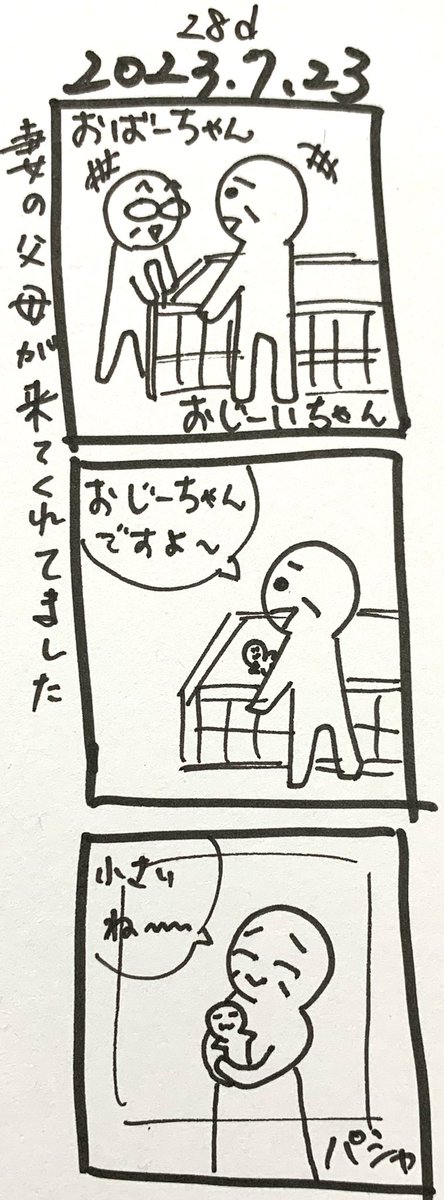 28d
2023.7.23
妻の父母が来てくれてました
おばーちゃん
おじーいちゃん
おじーちゃん
ですよ〜
小さい
ね〜〜
パシャ